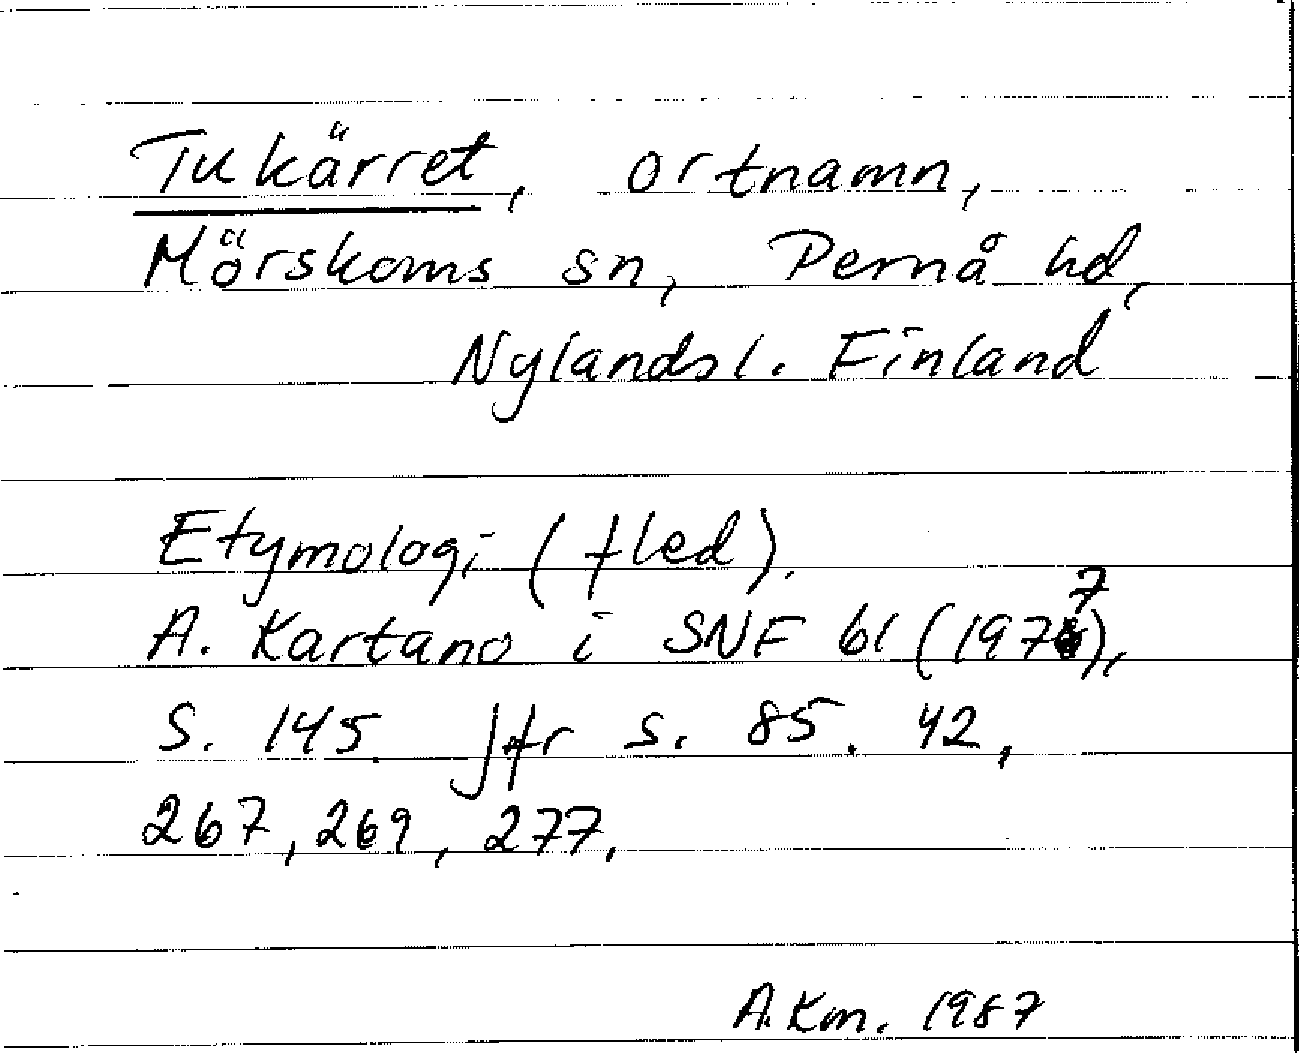 Tukärret, ortnamn,
Mörskoms sn, Pernå hd,
Nylandsl. Finland
Etymologi (fled).
A. Kartano i SNF 61 (1977),
S. 145. Jfr s. 85. 42,
267, 269, 277.
A. Km. 1987